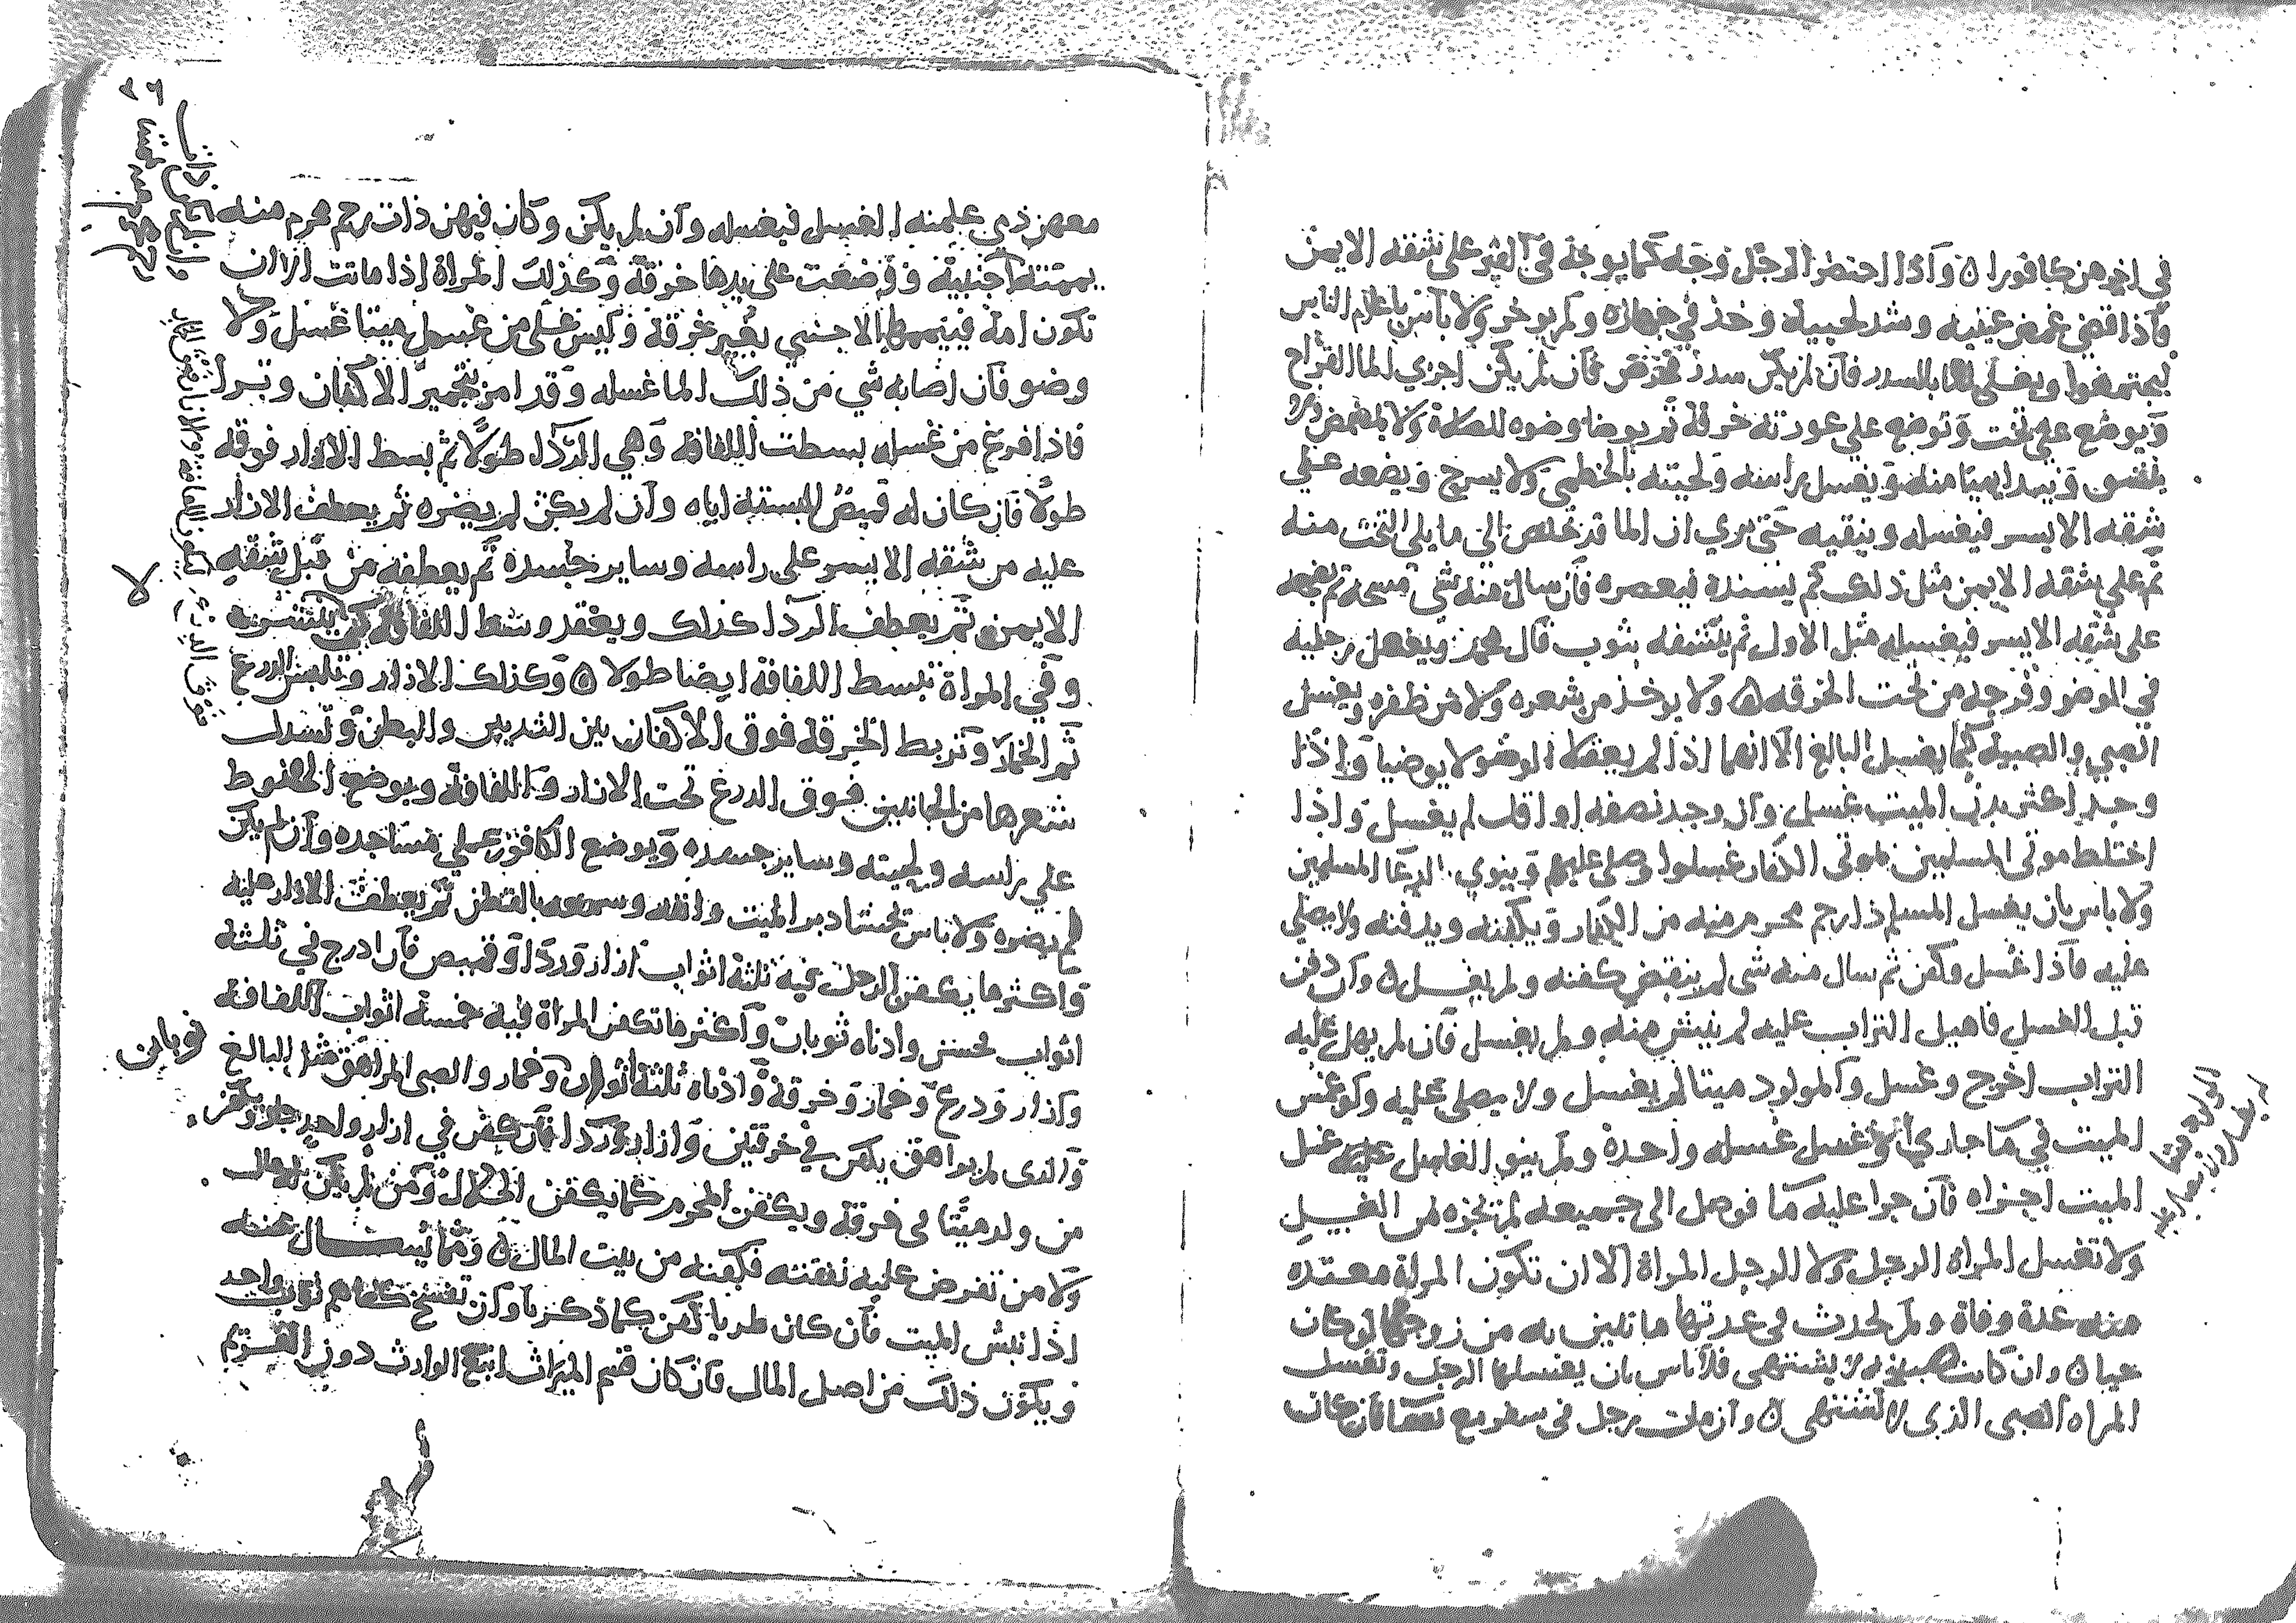 في اخرهن كافورا ۞ واذا احتضر الرجل وجه كما يوجه في القبر على شقه الايمن
فاذا قضى غمض عينيه وشد لحييه وخذ في جهازه ولم يوخر ولا باس باعلام الناس
ويغلى الما بالسدر فان لم يكن سدر فحرض فان لم يكن اجزي الما القراح
ويوضع على تخت وتوضع على عورته خرقة ثم يوضا وضوه للصلاة ولا يمضمض ولا
ينشق ويبدا بميامنه ويغسل راسه ولحيته بالخطمي ولا يسرح ويضعه على
شقه الايسر فيغسله وينقيه حتى يري ان الما قد خلص الى ما يلي التخت منه
ثم على شقه الايمن مثل ذلك ثم يسنده فيعصره فان سال منه شي مسحه ثم يضجعه
على شقه الايسر فيغسله مثل الاول ثم ينشفه بثوب قال محمد ويغسل رجليه
في الوضو وفرجه من تحت الخرقه ۞ ولا يوخذ من شعره ولا من ظفره ويغسل
الصبي والصبية كما يغسل البالغ الا انهما اذا لم يعقلا الوضو لا يوضيا واذا
وجد اكثر بدن الميت غسل وان وجد نصفه او اقل لم يغسل واذا
اختلط موتى المسلمين بموتى الكفار غسلوا وصلى عليهم وينوي بالدعا المسلمين
ولا باس بان يغسل المسلم ذا رحم محرم منه من الكفار ويكفنه ويدفنه ولا يصلي
عليه فاذا غسل وكفن ثم سال منه شي لم ينقض كفنه ولم يغسل ۞ وان دفن
قبل الغسل فاهيل التراب عليه لم ينبش منه ولم يغسل فان لم يهل عليه
التراب اخرج وغسل والمولود ميتا لم يغسل ولا يصلى عليه ولو غمس
الميت في ما جاري او غسل غسله واحدة ولم ينو الغاسل عليه غسل
الميت اجزاه فان جرا عليه ما فوصل الى جميعه لم تجزه من الغسل
ولا تغسل المراة الرجل ولا الرجل المراة الا ان تكون المراة معتده
منه عدة وفاة ولم تحدث في عدتها ما تبين به من زوجها لو كان
حيا ۞ وان كانت صبية لا يشتهى فلا باس بان يغسلها الرجل وتغسل
المراه الصبي الذي لا يشتهى ۞ وان مات رجل في سفر مع نسا فان كان
معهن ذمي علمنه الغسل فيغسله وان لم يكن وكان فيهن ذات رحم محرم منه
يممته اجنبية ووضعت على يدها خرقة وكذلك المراة اذا ماتت الا ان
تكون امة فييممها الاجنبي بغير خرقة وليس على من غسل ميتا غسل ولا
وضو فان اصابه شي من ذلك الما غسله وقد امر بتجمير الاكفان وترا
فاذا فرغ من غسله بسطت اللفافة وهي الردا طولا ثم بسط الازار فوقه
طولا فان كان له قميص البسته اياه وان لم يكن لم يضره ثم يعطف الازار
عليه من شقه الايسر على راسه وساير جسده ثم يعطفه من قبل شقه
الايمن ثم يعطف الردا كذلك ويعقد وسط اللفافة كي لا ينتشر
وفي المراة تبسط اللفافة ايضا طولا ۞ وكذلك الازار وتلبس الدرع
ثم الخمار وتربط الخرقة فوق الاكفان بين الثديين والبطن وتسدل
شعرها من الجانبين فوق الدرع تحت الازار واللفافة ويوضع الحنوط
على راسه ولحيته وساير جسده ويوضع الكافور على مساجده وان لم يكن
لم يضره ولا باس بحشا دبر الميت وانفه وسمعه بالقطن ثم يعطف الازار عليه
واكثر ما يكفن الرجل فيه ثلثة اثواب ازار وردا وقميص فان ادرج في ثلثه
اثواب محسن وادناه ثوبان واكثر ما تكفن المراة فيه خمسة اثواب اللفافة
وازار ودرع وخمار وخرقة وادناه ثلثة اثواب وخمار والصبي المراهق مثل البالغ
والذي لم يراهق يكفن في خرقتين وازار وردا فان كفن في ازار واحد جاز ويكفن
من ولد ميتا في خرقة ويكفن المحرم كما يكفن الحلال ومن لم يكن له مال
ولا من تفرض عليه نفقته فكفنه من بيت المال ۞ ومما يسال عنه
اذا نبش الميت فان كان طريا كفن كما ذكرنا وان تفسخ كفاهم ثوب واحد
ويكون ذلك من اصل المال فان كان قسم الميراث اتبع الوارث دون الغريم
ثوبان
لا